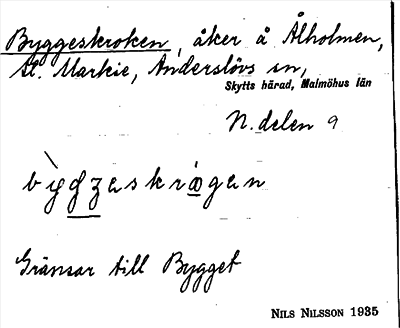 Byggeskroken, åker å Ålholmen,
St. Markie, Anderslövs sn,
Skytts härad, Malmöhus län
N. delen 9
Gränsar till Bygget
NILS NILSSON 1935